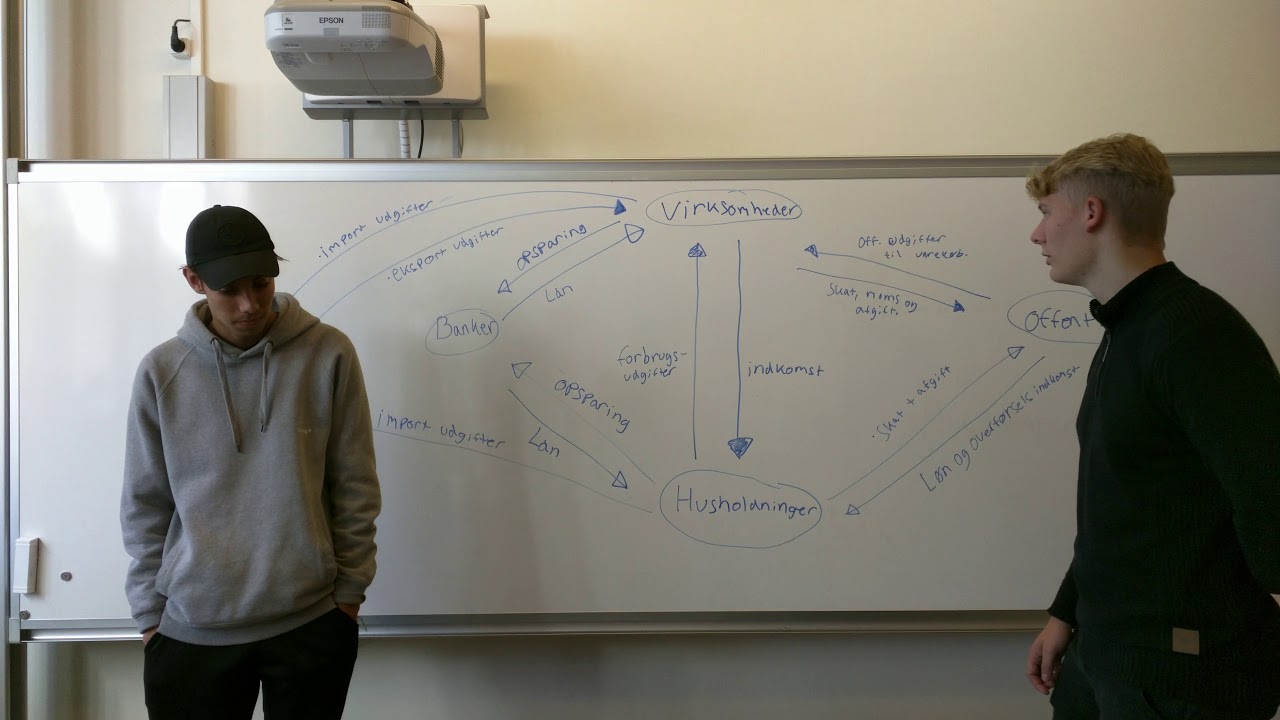 EPSON
import udgifter
Virksomheder
eksport udgifter
opsparing
Lån
Off. udgifter
til virksomh.
Skat, moms og
afgift.
Banker
Offent
forbrugs-
udgifter
indkomst
opsparing
Lån
import udgifter
Skat + afgift
Løn og overførsels indkomst
Husholdninger